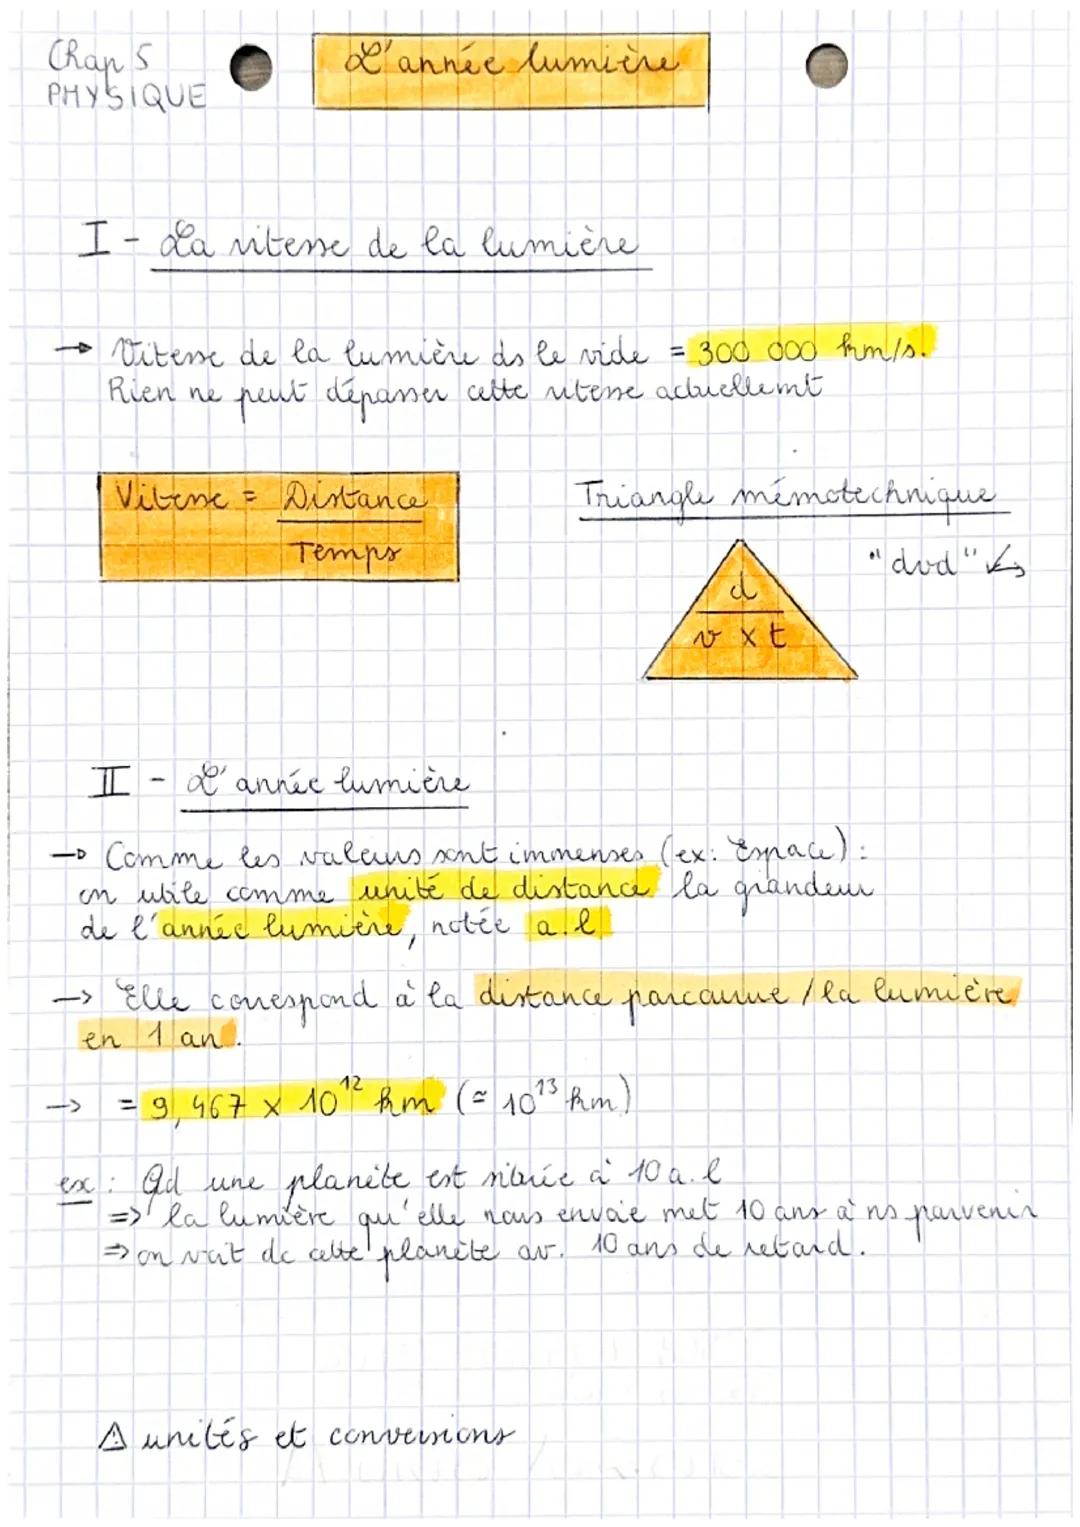 Chap 5
PHYSIQUE
L'année lumière
I - La vitesse de la lumière
→ Vitesse de la lumière ds le vide = 300 000 km/s.
Rien ne peut dépasser cette vitesse actuellemt
Vitesse = Distance
Temps
Triangle mémotechnique
"dvd"
d
v x t
II - L'année lumière
→ Comme les valeurs sont immenses (ex: Espace) :
on utile comme unité de distance la grandeur
de l'année lumière, notée a.l
→ Elle correspond à la distance parcourue / la lumière
en 1 an.
→ = 9,467 x 10¹² km (≃ 10¹³ km)
ex : Qd une planète est située à 10 a.l
=> la lumière qu'elle nous envoie met 10 ans à ns parvenir
=> on voit dc cette planète av. 10 ans de retard.
⚠ unités et conversions